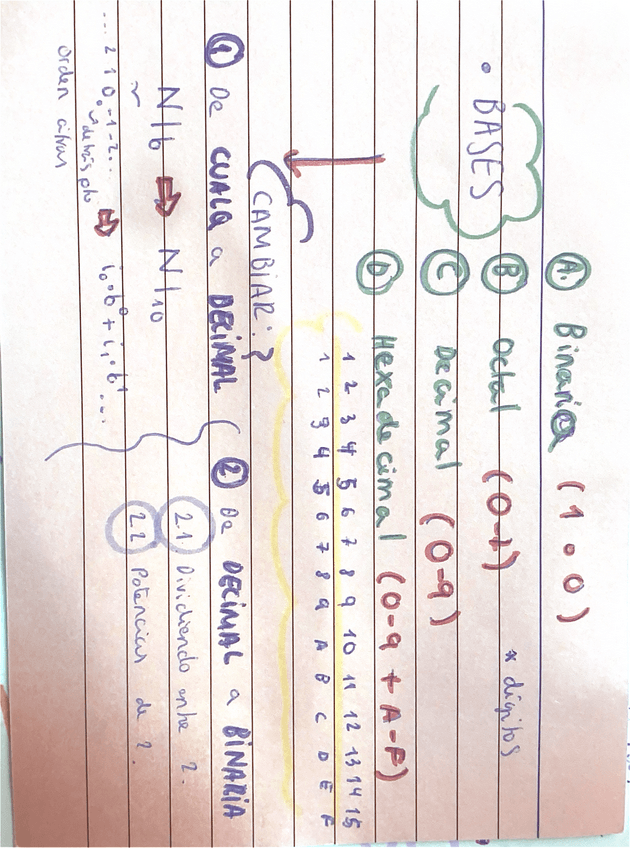 • BASES
A. Binaria (1 o 0)
B Octal (0-7) * dígitos
C Decimal (0-9)
D Hexadecimal (0-9 + A-F)
1 2 3 4 5 6 7 8 9 10 11 12 13 14 15
1 2 3 4 5 6 7 8 9 A B C D E F
CAMBIAR:
1 De CUALQ a DECIMAL
N/b ⇒ N/10
... 2 1 0, -1 -2... ⇒ i₀·b⁰ + i₁·b¹ ...
detrás pto
orden cifras
2 De DECIMAL a BINARIA
2.1 Dividiendo entre 2.
2.2 Potencias de 2.